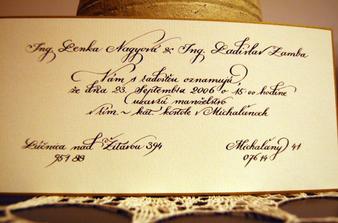 Ing. Lenka Nagyová & Ing. Ladislav Zamba
Vám s radosťou oznamujú,
že dňa 23. Septembra 2006 o 15⁰⁰ hodine
uzavrú manželstvo
v rím.-kat. kostole v Michalanoch
Lúčnica nad Žitavou 394 Michaľany 41
951 88 076 14